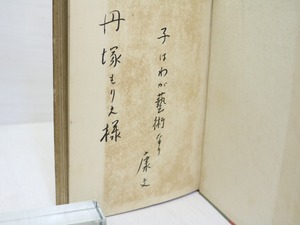 子はわが藝術なり
康文
丹塚もりえ様